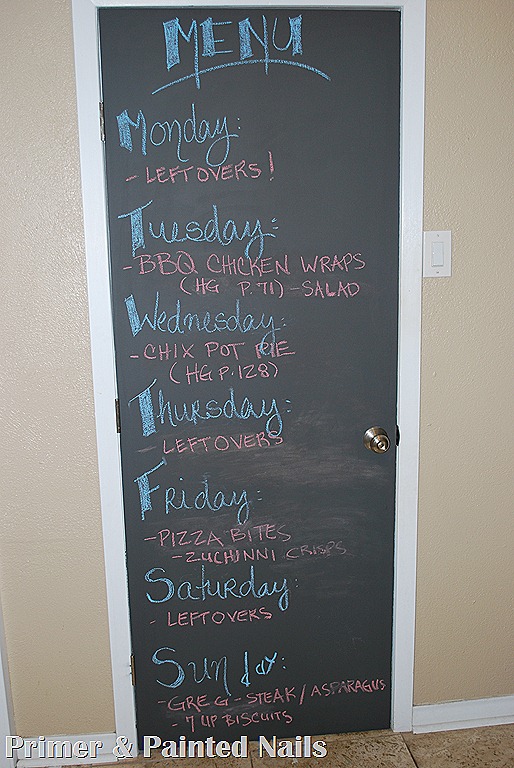 MENU
Monday:
- LEFTOVERS!
Tuesday:
- BBQ CHICKEN WRAPS
(HG P.71) - SALAD
Wednesday:
- CHIX POT PIE
(HG P.128)
Thursday:
- LEFTOVERS
Friday:
- PIZZA BITES
- ZUCHINNI CRISPS
Saturday:
- LEFTOVERS
Sunday:
- GREG - STEAK / ASPARAGUS
- 7 UP BISCUITS
Primer & Painted Nails